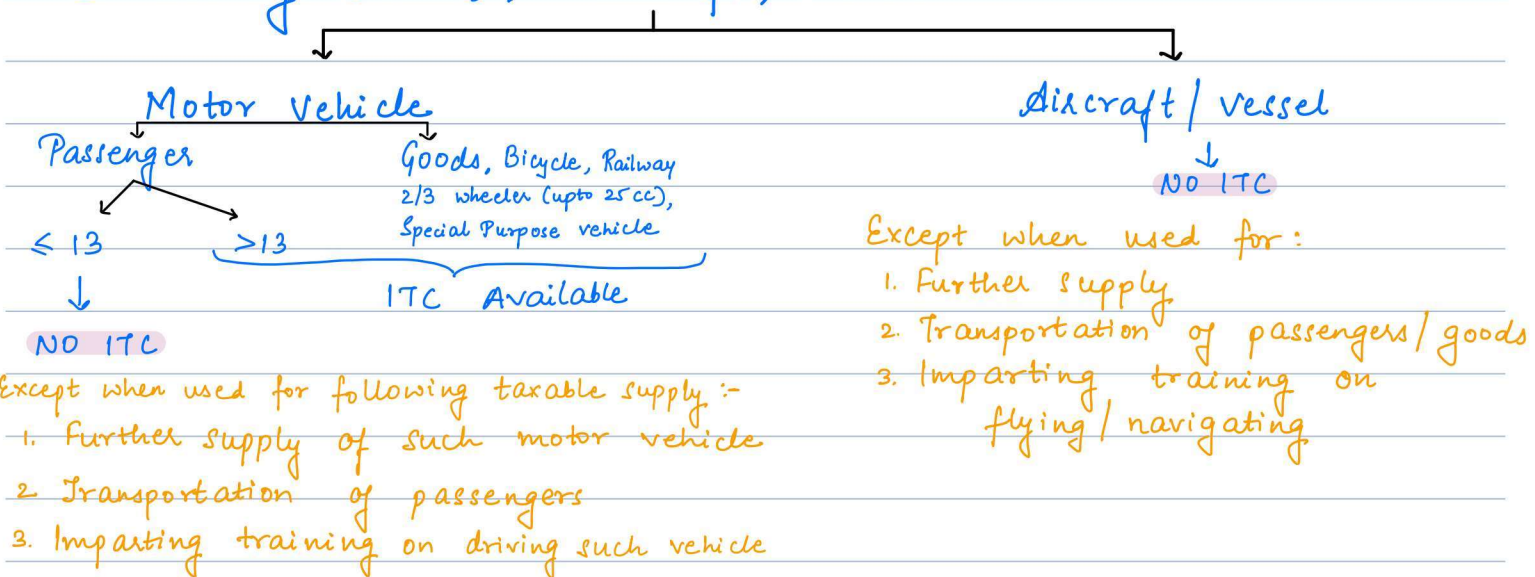 Motor Vehicle
Passenger
≤ 13
>13
Goods, Bicycle, Railway
2/3 wheeler (upto 25 cc),
Special Purpose vehicle
ITC Available
NO ITC
Except when used for following taxable supply :-
1. Further supply of such motor vehicle
2 Transportation of passengers
3. Imparting training on driving such vehicle
Aircraft / vessel
NO ITC
Except when used for :
1. Further supply
2. Transportation of passengers / goods
3. Imparting training on
flying / navigating